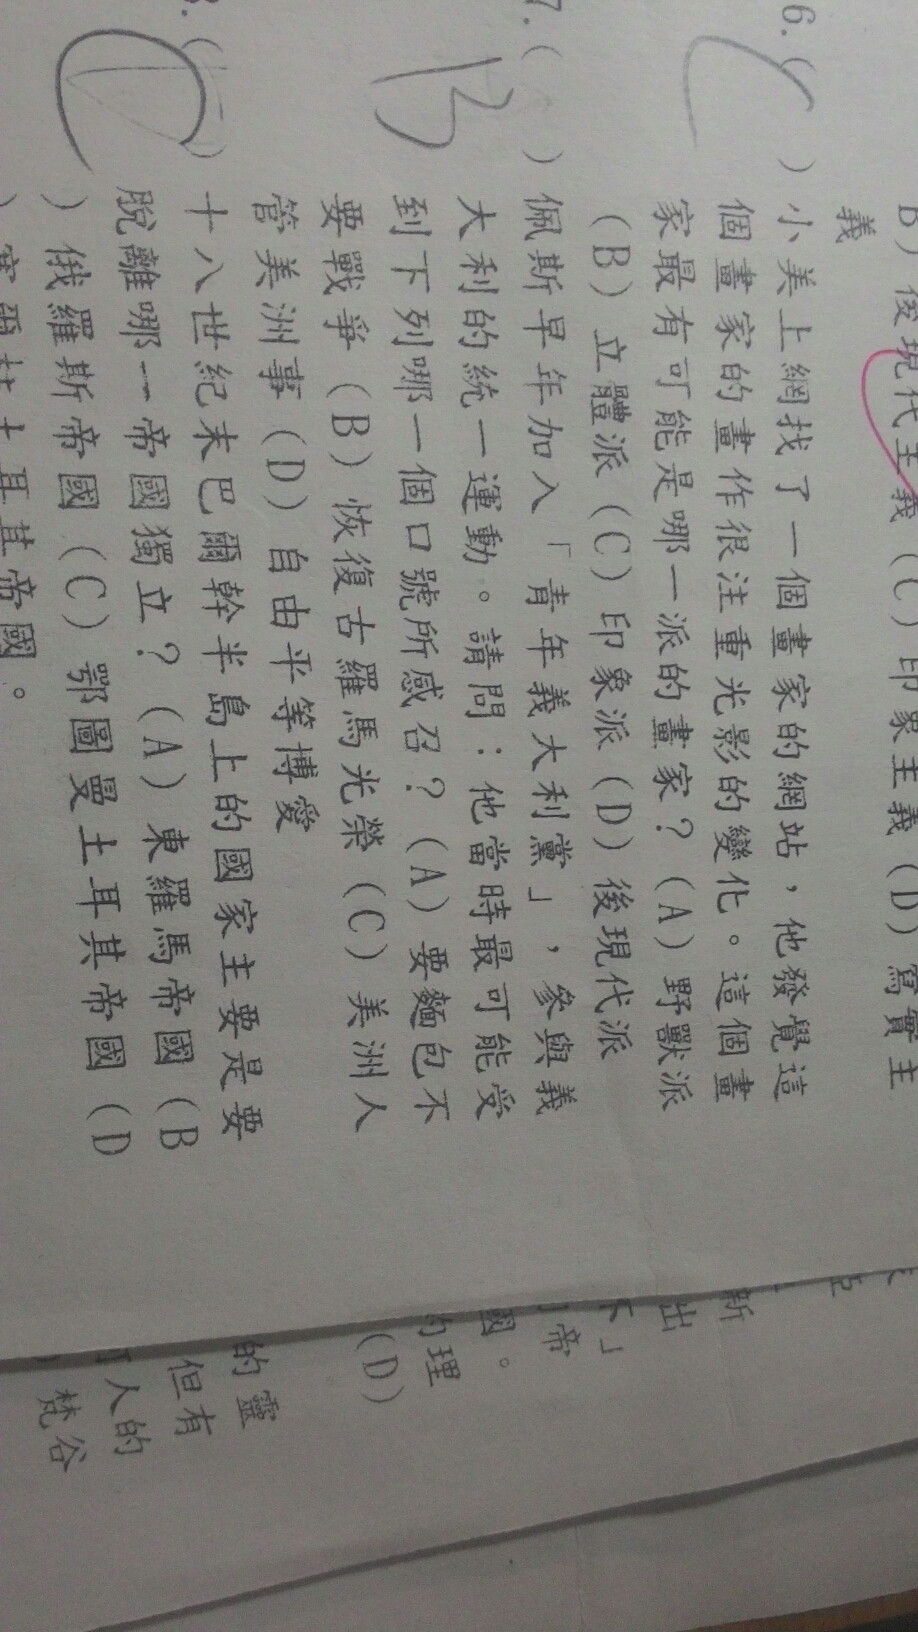 B)後現代主義(C)印象主義(D)寫實主
義
6.(C)小美上網找了一個畫家的網站，他發覺這
個畫家的畫作很注重光影的變化。這個畫
家最有可能是哪一派的畫家？(A)野獸派
(B)立體派(C)印象派(D)後現代派
7.(B)佩斯早年加入「青年義大利黨」，參與義
大利的統一運動。請問：他當時最可能受
到下列哪一個口號所感召？(A)要麵包不
要戰爭(B)恢復古羅馬光榮(C)美洲人
管美洲事(D)自由平等博愛
8.(C)十八世紀末巴爾幹半島上的國家主要是要
脫離哪一帝國獨立？(A)東羅馬帝國(B
)俄羅斯帝國(C)鄂圖曼土耳其帝國(D
)塞爾柱土耳其帝國。
亞
新
出
不」
帝
國。
的理
(D)
的靈
但有
人的
梵谷